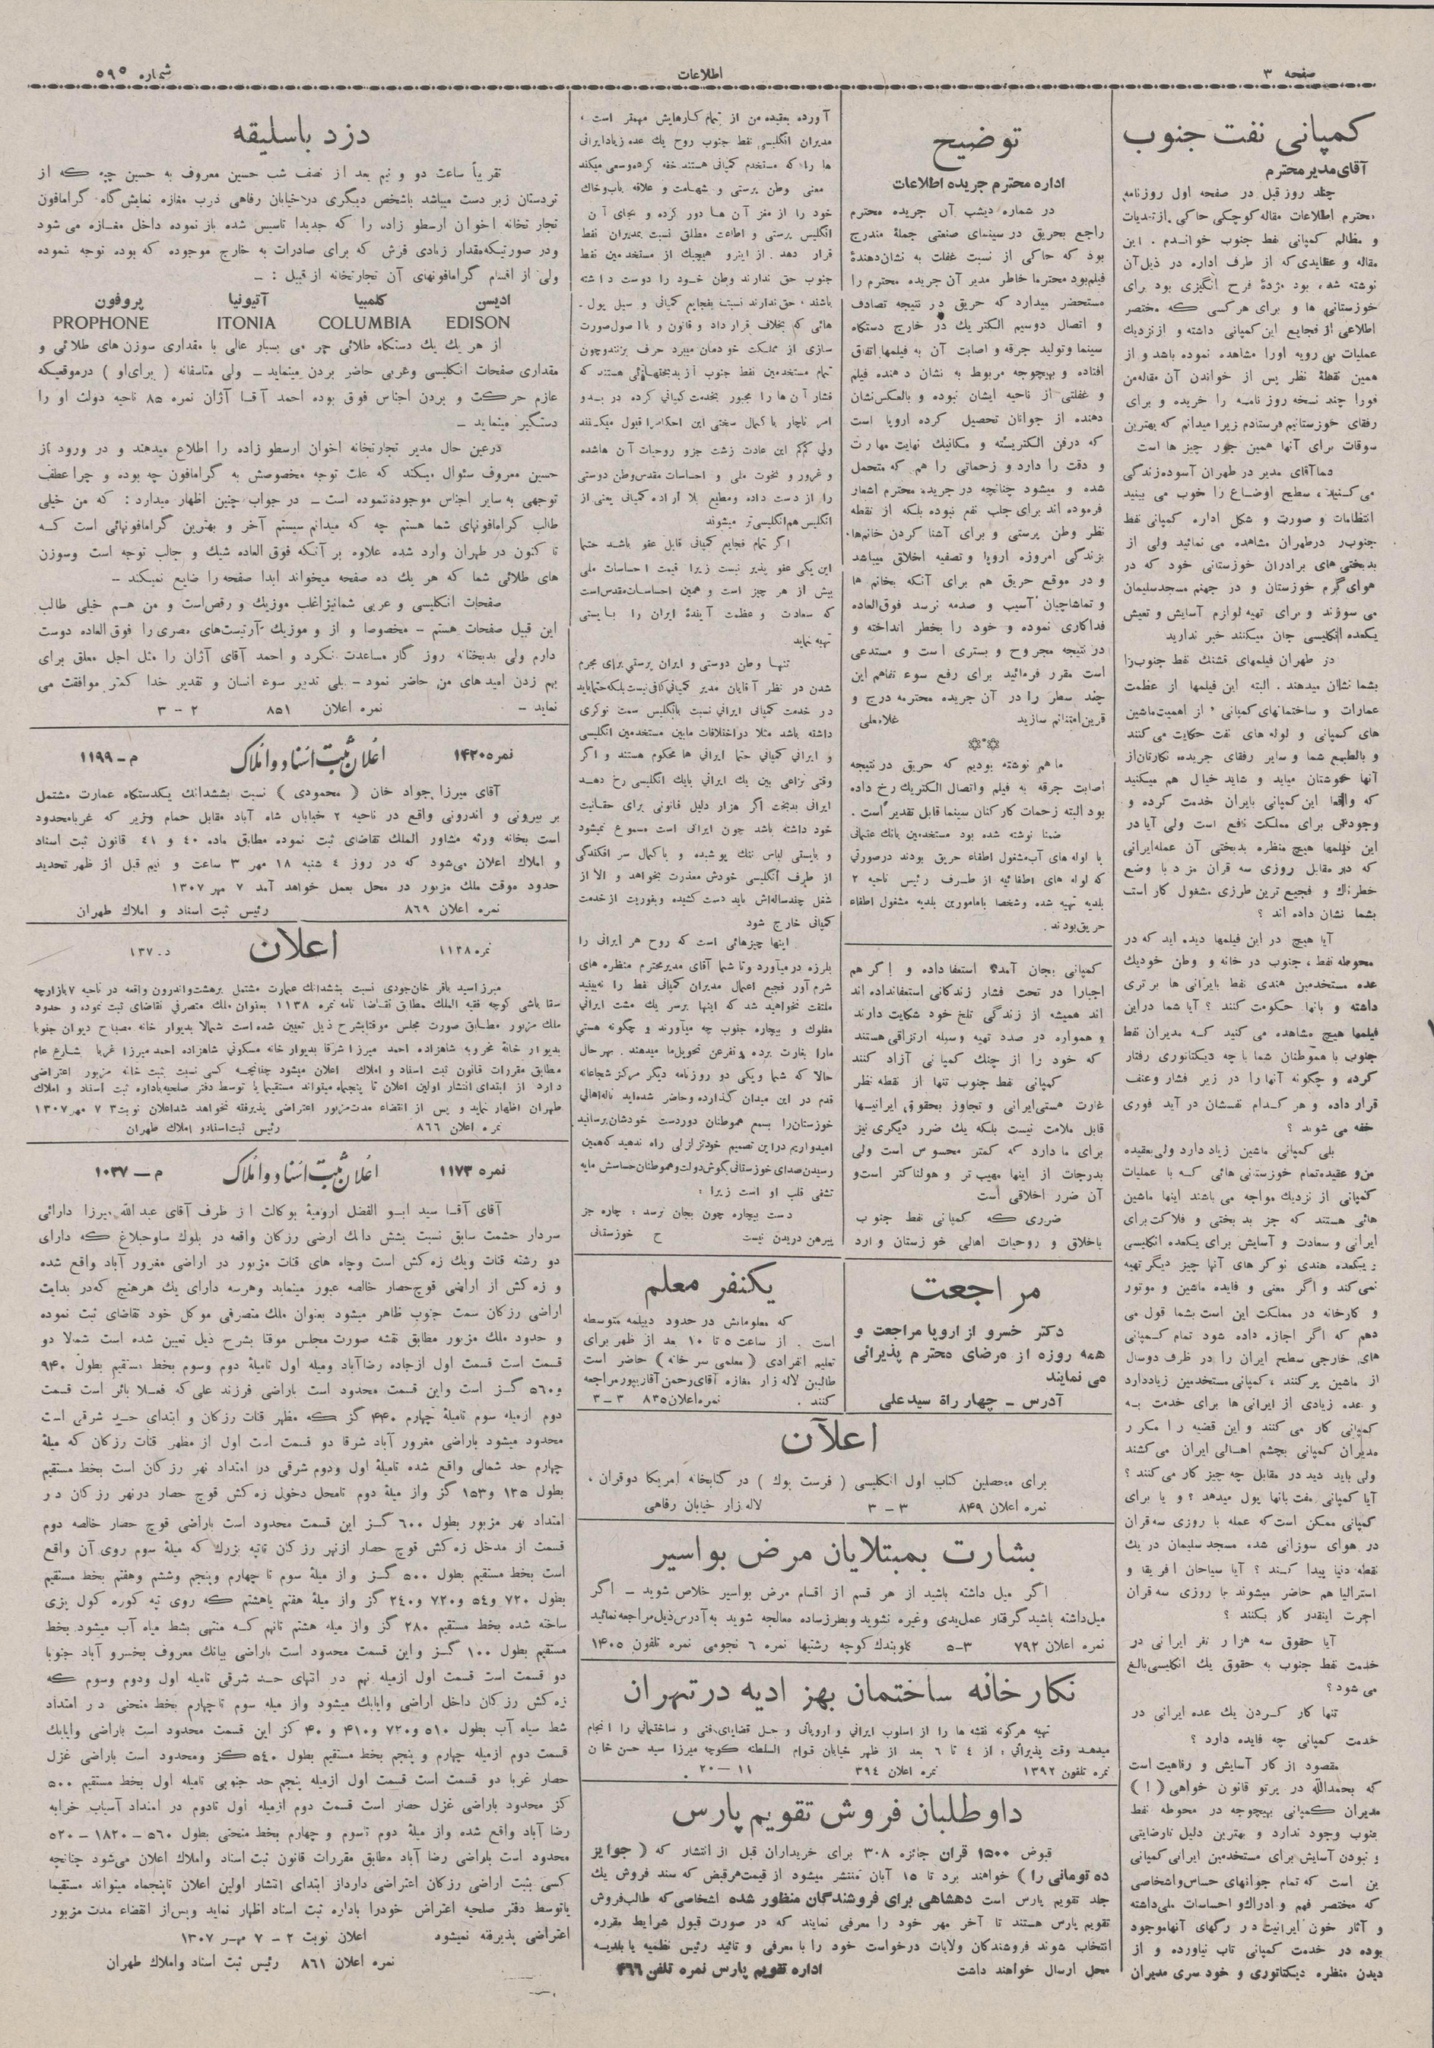 صفحه ۳
اطلاعات
شماره ۵۹۵
کمپانی نفت جنوب
آقای مدیر محترم
چند روز قبل در صفحه اول روزنامه
محترم اطلاعات مقاله کوچکی حاکی از تعدیات
و مظالم کمپانی نفط جنوب خواندم . این
مقاله و عقایدی که از طرف اداره در ذیل آن
نوشته شده بود مژدهٔ فرح انگیزی بود برای
خوزستانی ها و برای هر کسی که مختصر
اطلاعی از فجایع این کمپانی داشته و از نزدیک
عملیات بی رویه اورا مشاهده نموده باشد و از
همین نقطهٔ نظر پس از خواندن آن مقاله من
فورا چند نسخه روز نامه را خریده و برای
رفقای خوزستانیم فرستادم زیرا میدانم که بهترین
سوقات برای آنها همین جور چیز ها است
شما آقای مدیر در طهران آسوده زندگی
می کنید ، سطح اوضاع را خوب می بینید
انتظامات و صورت و شکل اداره کمپانی نفط
جنوب در طهران مشاهده می نمائید ولی از
بدبختی های برادران خوزستانی خود که در
هوای گرم خوزستان و در جهنم مسجد سلیمان
می سوزند و برای تهیه لوازم آسایش و تعیش
یکعده انگلیسی جان میکنند خبر ندارید
در طهران فیلمهای قشنک نفط جنوب را
بشما نشان میدهند . البته این فیلمها از عظمت
عمارات و ساختمانهای کمپانی ، از اهمیت ماشین
های کمپانی و لوله های نفت حکایت می کنند
و بالطبع شما و سایر رفقای جریده نگارتان از
آنها خوشتان میاید و شاید خیال هم میکنید
که واقعا این کمپانی بایران خدمت کرده و
وجودش برای مملکت نافع است ولی آیا در
این فیلمها هیچ منظره بدبختی آن عمله ایرانی
که در مقابل روزی سه قران مزد با وضع
خطرناک و فجیع ترین طرزی مشغول کار است
بشما نشان داده اند ؟
آیا هیچ در این فیلمها دیده اید که در
محوطه نفط ، جنوب در خانه و وطن خودیک
عده مستخدمین هندی نفط بایرانی ها برتری
داشته و بآنها حکومت کنند ؟ آیا شما در این
فیلمها هیچ مشاهده می کنید که مدیران نفط
جنوب با هموطنان شما با چه دیکتاتوری رفتار
کرده و چگونه آنها را در زیر فشار و عنف
قرار داده و هر کدام نفسشان در آید فوری
خفه می شوند ؟
بلی کمپانی ماشین زیاد دارد ولی بعقیده
من و عقیده تمام خوزستانی هائی که با عملیات
کمپانی از نزدیک مواجه می باشند اینها ماشین
هائی هستند که جز بدبختی و فلاکت برای
ایرانی و سعادت و آسایش برای یکعده انگلیسی
و یکعده هندی نوکر های آنها چیز دیگر تهیه
نمی کند و اگر معنی و فایده ماشین و موتور
و کارخانه در مملکت این است بشما قول می
دهم که اگر اجازه داده شود تمام کمپانی
های خارجی سطح ایران را در ظرف دو سال
از ماشین پر کنند ، کمپانی مستخدمین زیاد دارد
و عده زیادی از ایرانی ها برای خدمت به
کمپانی کار می کنند و این قضیه را مکرر
مدیران کمپانی بچشم اهالی ایران می کشند
ولی باید دید در مقابل چه چیز کار می کنند ؟
آیا کمپانی مفت بآنها پول میدهد ؟ و یا برای
کمپانی ممکن است که عمله با روزی سه قران
در هوای سوزانی شده مسجد سلیمان در یک
نقطه دنیا پیدا کنند ؟ آیا سیاحان افریقا و
استرالیا هم حاضر میشوند با روزی سه قران
اجرت اینقدر کار بکنند ؟
آیا حقوق سه هزار نفر ایرانی در
خدمت نفط جنوب به حقوق یک انگلیسی بالغ
می شود ؟
تنها کار کردن یک عده ایرانی در
خدمت کمپانی چه فایده دارد ؟
مقصود از کار آسایش و رفاهیت است
که بحمدالله در پرتو قانون خواهی ( ! )
مدیران کمپانی بهیچوجه در محوطه نفط
جنوب وجود ندارد و بهترین دلیل نارضایتی
و نبودن آسایش برای مستخدمین ایرانی کمپانی
این است که تمام جوانهای حساس و اشخاصی
که مختصر فهم و ادراک و احساسات ملی داشته
و آثار خون ایرانیت در رگهای آنها موجود
بوده در خدمت کمپانی تاب نیاورده و از
دیدن منظره دیکتاتوری و خود سری مدیران
توضیح
اداره محترم جریده اطلاعات
در شماره دیشب آن جریده محترم
راجع بحریق در سینمای صنعتی جملهٔ مندرج
بود که حاکی از نسبت غفلت به نشان دهندهٔ
فیلم بود محترما خاطر مدیر آن جریده محترم را
مستحضر میدارد که حریق در نتیجه تصادف
و اتصال دو سیم الکتریک در خارج دستگاه
سینما و تولید جرقه و اصابت آن به فیلمها اتفاق
افتاده و بهیچوجه مربوط به نشان دهنده فیلم
و غفلتی از ناحیه ایشان نبوده و بالعکس نشان
دهنده از جوانان تحصیل کرده اروپا است
که در فن الکتریسته و مکانیک نهایت مهارت
و دقت را دارد و زحماتی را هم که متحمل
شده و میشود چنانچه در جریده محترم اشعار
فرموده اند برای جلب نفع نبوده بلکه از نقطه
نظر وطن پرستی و برای آشنا کردن خانم ها
بزندگی امروزه اروپا و تصفیه اخلاق میباشد
و در موقع حریق هم برای آنکه بخانم ها
و تماشاچیان آسیب و صدمه نرسد فوق العاده
فداکاری نموده و خود را بخطر انداخته و
در نتیجه مجروح و بستری است و مستدعی
است مقرر فرمائید برای رفع سوء تفاهم این
چند سطر را در آن جریده محترمه درج و
قرین امتنانم سازید غلامعلی
ما هم نوشته بودیم که حریق در نتیجه
اصابت جرقه به فیلم و اتصال الکتریک رخ داده
بود البته زحمات کارکنان سینما قابل تقدیر است .
ضمنا نوشته شده بود مستخدمین بانک عثمانی
با لوله های آب مشغول اطفاء حریق بودند در صورتی
که لوله های اطفائیه از طرف رئیس ناحیه ۲
بلدیه تهیه شده و شخصا با مامورین بلدیه مشغول اطفاء
حریق بودند .
کمپانی بجان آمده استعفا داده و اگر هم
اجبارا در تحت فشار زندگانی استعفا نداده اند
اند همیشه از زندگی تلخ خود شکایت دارند
و همواره در صدد تهیه وسیله ارتزاقی هستند
که خود را از چنک کمپانی آزاد کنند
کمپانی نفط جنوب تنها از نقطه نظر
غارت هستی ایرانی و تجاوز بحقوق ایرانیها
قابل ملامت نیست بلکه یک ضرر دیگری نیز
برای ما دارد که کمتر محسوس است ولی
بدرجات از اینها مهیب تر و هولناکتر است و
آن ضرر اخلاقی است
ضرری که کمپانی نفط جنوب
باخلاق و روحیات اهالی خوزستان وارد
آورده بعقیده من از تمام کارهایش مهمتر است ،
مدیران انگلیسی نفط جنوب روح یک عده زیاد ایرانی
ها را که مستخدم کمپانی هستند خفه کرده وسعی میکند
معنی وطن پرستی و شهامت و علاقه بآب و خاک
خود را از مغز آن ها دور کرده و بجای آن
انگلیس پرستی و اطاعت مطلق نسبت بمدیران نفط
قرار دهد . از اینرو هیچیک از مستخدمین نفط
جنوب حق ندارند وطن خود را دوست داشته
باشند ، حق ندارند نسبت بفجایع کمپانی و سیل پول
هائی که بخلاف قرار داد و قانون و با اصول صورت
سازی از مملکت خودمان میبرد حرف بزنند و چون
تمام مستخدمین نفط جنوب از بدبختهائی هستند که
فشار آن ها را مجبور بخدمت کمپانی کرده در بدو
امر ناچار با کمال سختی این احکام را قبول میکنند
ولی کم کم این عادت زشت جزو روحیات آن ها شده
و غرور و نخوت ملی و احساسات مقدس وطن دوستی
را از دست داده و مطیع بلا اراده کمپانی یعنی از
انگلیس هم انگلیسی تر میشوند
اگر تمام فجایع کمپانی قابل عفو باشد حتما
این یکی عفو پذیر نیست زیرا قیمت احساسات ملی
بیش از هر چیز است و همین احساسات مقدس است
که سعادت و عظمت آیندهٔ ایران را بایستی
تهیه نماید
تنها وطن دوستی و ایران پرستی برای مجرم
شدن در نظر آقایان مدیر کمپانی کافی نیست بلکه حتما باید
در خدمت کمپانی ایرانی نسبت بانگلیس سمت نوکری
داشته باشد مثلا در اختلافات مابین مستخدمین انگلیسی
و ایرانی کمپانی حتما ایرانی ها محکوم هستند و اگر
وقتی نزاعی بین یک ایرانی با یک انگلیسی رخ دهد
ایرانی بدبخت اگر هزار دلیل قانونی برای حقانیت
خود داشته باشد چون ایرانی است مسموع نمیشود
و بایستی لباس ننک پوشیده و با کمال سر افکندگی
از طرف انگلیسی خودش معذرت بخواهد و الا از
شغل چند ساله اش باید دست کشیده و بفوریت از خدمت
کمپانی خارج شود
اینها چیزهائی است که روح هر ایرانی را
بلرزه در میآورد و تا شما آقای مدیر محترم منظره های
شرم آور فجیع اعمال مدیران کمپانی نفط را نه بینید
ملتفت نخواهید شد که اینها بر سر یک مشت ایرانی
مفلوک و بیچاره جنوب چه میآورند و چگونه هستی
مارا بغارت برده و نفرعن تحویل ما میدهند . بهر حال
حالا که شما و یکی دو روزنامه دیگر مرکز شجاعانه
قدم در این میدان گذارده و حاضر شده اید ناله اهالی
خوزستان را بسمع هموطنان دور دست خودشان برسانید
امیدواریم در این تصمیم خود تزلزلی راه ندهید که همین
رسیدن صدای خوزستانی بگوش دولت و هموطنان حساسش مایه
تشفی قلب او است زیرا :
دست بیچاره چون بجان نرسد : چاره جز
پیرهن دریدن نیست ح خوزستانی
مراجعت
دکتر خسرو از اروپا مراجعت و
همه روزه از مرضای محترم پذیرائی
می نمایند
آدرس – چهار راه سید علی
یکنفر معلم
که معلوماتش در حدود دیپلمه متوسطه
است . از ساعت ۵ تا ۱۰ بعد از ظهر برای
تعلیم انفرادی ( معلمی سر خانه ) حاضر است
طالبین لاله زار مغازه آقای رحمن آقا رپور مراجعه
کنند . نمره اعلان ۸۳۵ ۳ – ۳
اعلان
برای محصلین کتاب اول انگلیسی ( فرست بوک ) در کتابخانه امریکا دو قران ،
نمره اعلان ۸۴۹ ۳ – ۳ لاله زار خیابان رفاهی
بشارت بمبتلایان مرض بواسیر
اگر میل داشته باشید از هر قسم از اقسام مرض بواسیر خلاص شوید – اگر
میل داشته باشید گرفتار عمل یدی وغیره نشوید و بطرز ساده معالجه شوید به آدرس ذیل مراجعه نمائید
نمره اعلان ۷۹۲ ۳–۵ گلوبندک کوچه رشتیها نمره ۶ نجومی نمره تلفون ۱۴۰۵
نگارخانه ساختمان بهزادیه در تهران
تهیه هرگونه نقشه ها را از اسلوب ایرانی و اروپائی و حل قضایای فنی و ساختمانی را انجام
میدهد وقت پذیرائی : از ٤ تا ۶ بعد از ظهر خیابان قوام السلطنه کوچه میرزا سید حسن خان
نمره تلفون ۱۳۹۲ نمره اعلان ۳۹٤ ۱۱ –۲۰
داوطلبان فروش تقویم پارس
قبوض ۱۵۰۰ قران جائزه ۳۰۸ برای خریداران قبل از انتشار که ( جوایز
ده تومانی را ) خواهند برد تا ۱۵ آبان منتشر میشود از قیمت هر قبض که سند فروش یک
جلد تقویم پارس است دهشاهی برای فروشندگان منظور شده اشخاصی که طالب فروش
تقویم پارس هستند تا آخر مهر خود را معرفی نمایند که در صورت قبول شرایط مقرره
انتخاب شوند فروشندگان ولایات درخواست خود را با معرفی و تائید رئیس نظمیه یا بلدیه
محل ارسال خواهند داشت اداره تقویم پارس نمره تلفن ۴۶۶
دزد باسلیقه
تقریباً ساعت دو و نیم بعد از نصف شب حسین معروف به حسین چپه که از
تردستان زبر دست میباشد باشخص دیگری در خیابان رفاهی درب مغازه نمایش گاه گرامافون
تجارتخانه اخوان ارسطو زاده را که جدیدا تاسیس شده باز نموده داخل مغازه می شود
ودر صورتیکه مقدار زیادی فرش که برای صادرات به خارج موجوده که بوده توجه ننموده
ولی از اقسام گرامافونهای آن تجارتخانه از قبیل : –
ادیسن کلمبیا آتیونیا پروفون
PROPHONE ITONIA COLUMBIA EDISON
از هر یک یک دستگاه طلائی چرمی بسیار عالی با مقداری سوزن های طلائی و
مقداری صفحات انگلیسی وعربی حاضر بردن مینماید – ولی متاسفانه ( برای او ) در موقعیکه
عازم حرکت و بردن اجناس فوق بوده احمد آقا آژان نمره ۸۵ ناحیه دولت او را
دستگیر مینماید –
در عین حال مدیر تجارتخانه اخوان ارسطو زاده را اطلاع میدهند و در ورود از
حسین معروف سئوال میکند که علت توجه مخصوصش به گرامافون چه بوده و چرا عطف
توجهی به سایر اجناس موجوده ننموده است – در جواب چنین اظهار میدارد : که من خیلی
طالب گرامافونهای شما هستم چه که میدانم سیستم آخر و بهترین گرامافونهائی است که
تا کنون در طهران وارد شده علاوه بر آنکه فوق العاده شیک و جالب توجه است وسوزن
های طلائی شما که هر یک ده صفحه میخواند ابدا صفحه را ضایع نمیکند –
صفحات انگلیسی و عربی شما نیز اغلب موزیک و رقص است و من هم خیلی طالب
این قبیل صفحات هستم – مخصوصا و از و موزیک آرتیست های مصری را فوق العاده دوست
دارم ولی بدبختانه روز گار مساعدت نکرد و احمد آقای آژان را مثل اجل معلق برای
بهم زدن امید های من حاضر نمود – بلی تدبیر سوء انسان و تقدیر خدا کمتر موافقت می
نماید – نمره اعلان ۸۵۱ ۲ – ۳
نمره ۱۴۲۰۵ اعلان ثبت اسناد و املاک م – ۱۱۹۹
آقای میرزا جواد خان ( محمودی ) نسبت بششدانک یکدستگاه عمارت مشتمل
بر بیرونی و اندرونی واقع در ناحیه ۲ خیابان شاه آباد مقابل حمام وزیر که غربا محدود
است بخانه ورثه مشاور الملک تقاضای ثبت نموده مطابق ماده ۴۰ و ۴۱ قانون ثبت اسناد
و املاک اعلان می شود که در روز ٤ شنبه ۱۸ مهر ۳ ساعت و نیم قبل از ظهر تحدید
حدود موقت ملک مزبور در محل بعمل خواهد آمد ۷ مهر ۱۳۰۷
نمره اعلان ۸۶۹ رئیس ثبت اسناد و املاک طهران
نمره ۱۱۳۸ اعلان د – ۱۳۷
میرزا سید باقر خان جودی نسبت بششدانک عمارت مشتمل بر هشت و اندرون واقعه در ناحیه ۷ بازارچه
سقا باشی کوچه فقیه الملک مطابق تقاضا نامه نمره ۱۱۳۸ بعنوان ملک متصرفی تقاضای ثبت نموده و حدود
ملک مزبور مطابق صورت مجلس موقتا بشرح ذیل تعیین شده است شمالا بدیوار خانه مصباح دیوان جنوبا
بدیوار خانهٔ مخروبه شاهزاده احمد میرزا شرقا بدیوار خانه مسکونی شاهزاده احمد میرزا غربا بشارع عام
مطابق مقررات قانون ثبت اسناد و املاک اعلان میشود چنانچه کسی نسبت بثبت خانه مزبور اعتراضی
دارد از ابتدای انتشار اولین اعلان تا پنجماه میتواند مستقیما یا توسط دفتر صلحیه باداره ثبت اسناد و املاک
طهران اظهار نماید و پس از انقضاء مدت مزبور اعتراضی پذیرفته نخواهد شد اعلان نوبت ۳ ۷ مهر ۱۳۰۷
نمره اعلان ۸۶۶ رئیس ثبت اسناد و املاک طهران
نمره ۱۱۷۳ اعلان ثبت اسناد و املاک م – ۱۰۳۷
آقای آقا سید ابو الفضل ارومیهٔ بوکالت از طرف آقای عبدالله میرزا دارائی
سردار حشمت سابق نسبت بشش دانک ارضی رزکان واقعه در بلوک ساوجبلاغ که دارای
دو رشته قنات ویک زه کش است وچاه های قنات مزبور در اراضی مغرور آباد واقع شده
و زه کش از اراضی قوچ حصار خالصه عبور مینماید وهرسه دارای یک هرهنج که در بدایت
اراضی رزکان سمت جنوب ظاهر میشود بعنوان ملک متصرفی موکل خود تقاضای ثبت نموده
و حدود ملک مزبور مطابق نقشه صورت مجلس موقتا بشرح ذیل تعیین شده است شمالا دو
قسمت است قسمت اول ازجاده رضا آباد ومیله اول تامیلهٔ دوم وسوم بخط مستقیم بطول ۹۴۰
و ۵۶۰ گز است واین قسمت محدود است باراضی فرزند علی که فعلا بائر است قسمت
دوم ازمیله سوم تامیلهٔ چهارم ۴۴۰ گز که مظهر قنات رزکان و ابتدای حد شرقی است
محدود میشود باراضی مغرور آباد شرقا دو قسمت است اول از مظهر قنات رزکان که میلهٔ
چهارم حد شمالی واقع شده تامیلهٔ اول ودوم شرقی در امتداد نهر رزکان است بخط مستقیم
بطول ۱۳۵ و۱۵۳ گز واز میلهٔ دوم تامحل دخول زه کش قوچ حصار درنهر رزکان در
امتداد نهر مزبور بطول ۶۰۰ گز این قسمت محدود است باراضی قوچ حصار خالصه دوم
قسمت از مدخل زه کش قوچ حصار ازنهر رزکان تاتپه بزرک که میلهٔ سوم روی آن واقع
است بخط مستقیم بطول ۵۰۰ گز واز میلهٔ سوم تا چهارم وپنجم وششم وهفتم بخط مستقیم
بطول ۷۲۰ و۵۴ و۷۲۰ و۲۴۰ گز واز میلهٔ هفتم باهشتم که روی تپه کوره کول بزی
ساخته شده بخط مستقیم ۲۸۰ گز واز میله هشتم تانهم که منتهی بشط سیاه آب میشود بخط
مستقیم بطول ۱۰۰ گز واین قسمت محدود است باراضی بیانک معروف بخسرو آباد جنوبا
دو قسمت است قسمت اول ازمیله نهم در انتهای حد شرقی تامیله اول ودوم وسوم که
زه کش رزکان داخل اراضی وایابک میشود واز میله سوم تاچهارم بخط منحنی در امتداد
شط سیاه آب بطول ۵۱۰ و۷۲۰ و۴۱۰ و ۴۰ گز این قسمت محدود است باراضی وایابک
قسمت دوم ازمیله چهارم و پنجم بخط مستقیم بطول ۵۴۰ گز ومحدود است باراضی غزل
حصار غربا دو قسمت است قسمت اول ازمیله پنجم حد جنوبی تامیله اول بخط مستقیم ۵۰۰
گز محدود باراضی غزل حصار است قسمت دوم ازمیله اول تادوم در امتداد آسیاب خرابه
رضا آباد واقع شده واز میلهٔ دوم تاسوم و چهارم بخط منحنی بطول ۵۶۰ –۱۸۲۰ – ۵۲۰
محدود است باراضی رضا آباد مطابق مقررات قانون ثبت اسناد واملاک اعلان می‌شود چنانچه
کسی بثبت اراضی رزکان اعتراضی دارد از ابتدای انتشار اولین اعلان تاپنجماه میتواند مستقیما
یاتوسط دفتر صلحیه اعتراض خودرا باداره ثبت اسناد اظهار نماید وپس از انقضاء مدت مزبور
اعتراضی پذیرفته نمیشود اعلان نوبت ۲ – ۷ مهر ۱۳۰۷
نمره اعلان ۸۶۱ رئیس ثبت اسناد واملاک طهران